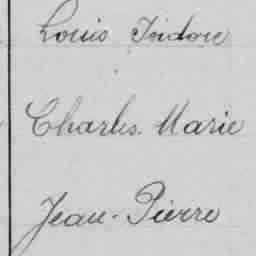 Louis Isidore
Charles Marie
Jean-Pierre